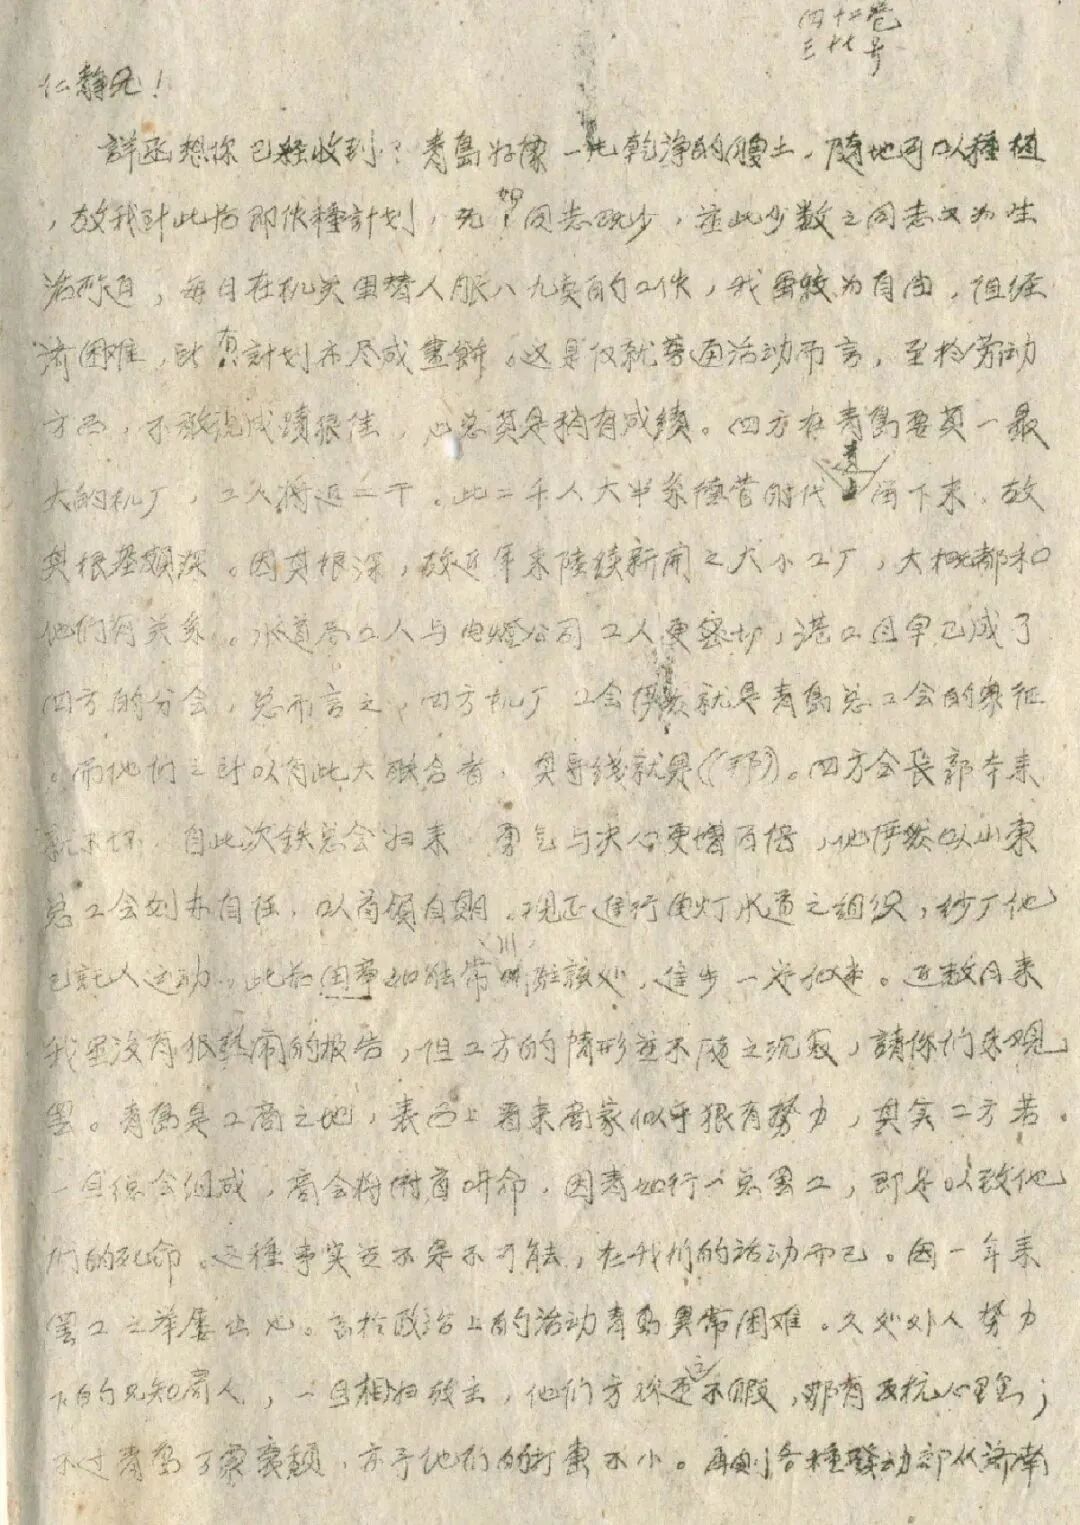 四十二卷
三廿七号
仁静兄！
詳函想你已経收到？青島好像一地乾淨的膄土，隨地可以種植
，故我到此后即依種計划，无如同志既少，並此少数之同志又为生
活所迫，每日在机关里替人服八九点的工作，我虽較为自由，但経
济困难，所有計划亦尽成畫餅。这是仅就普通活动而言，至於劳动
方面，不敢说成蹟很佳，也总算是稍有成績。四方在青島要算一最
大的机厂，工人将近二千。此二千人大半系德管时代留下来，故
其根基頗深。因其根深，故近年来陸续新开之大小工厂，大概都和
他们有关系。水道局工人与电燈公司工人更密切，港工且早已成了
四方的分会，总而言之，四方机厂工会俨然就是青島总工会的象征
。而他们之所以有此大联合者，其导线就是《郭》。四方会長郭本来
就不坏，自此次铁总会归来，勇气与决心更增百倍，他俨然以山東
总工会创办自任，以首領自期。現正進行电灯水道之组织，纱厂他
已託人运动，此后国章如能常川駐該处，進步一定很快。近数月来
我虽没有很熱闹的报告，但工方的情形並不随之沉寂，請你们来观
。青島是工商之地，表面上看来商家似乎狠有势力，其实工方若
一旦总会组成，商会将俯首听命，因为如行一总罢工，即足以致他
们的死命。这種事实並不是不可能，在我们的活动而已。因一年来
罢工之举屡出也。言於政治上的活动青島異常困难。久处外人势力
下的只知有人，一旦相归故主，他们方欢迎之不暇，那有反抗心理；
不过青島了，亦予他们的打击不小。再则各種發动都从済南